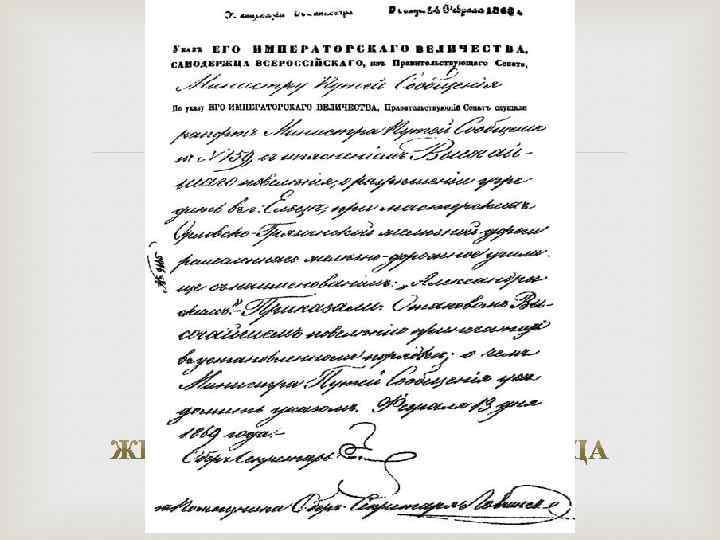 Указъ ЕГО ИМПЕРАТОРСКАГО ВЕЛИЧЕСТВА,
САМОДЕРЖЦА ВСЕРОССІЙСКАГО, изъ Правительствующаго Сената,
Министру Путей Сообщенія
По указу ЕГО ИМПЕРАТОРСКАГО ВЕЛИЧЕСТВА, Правительствующій Сенатъ слушали
рапортъ Министра Путей Сообщенія
№ 159, съ изъясненіемъ Высочай-
шаго повеленія, о разрешеніи учре-
дить въ г. Ельце, при мастерскихъ
Орловско-Грязской железной дороги
железно-дорожное учили-
ще съ наименованіемъ: „Александров-
скимъ". Приказали: О таковомъ Вы-
сочайшемъ повеленіи припечатать
въ установленномъ порядке; о чемъ
Министра Путей Сообщенія уве-
домить указомъ. Февраля 13 дня
1869 года.
Обер-Секретарь
Обер-Секретарь
ЖЕ
ЦА